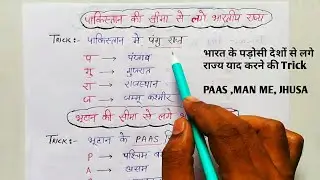 पाकिस्तान की सीमा से लगे भारतीय राज्य
TRICK:- पाकिस्तान में पंगु राज
प → पंजाब
गु → गुजरात
रा → राजस्थान
ज → जम्मू कश्मीर
भूटान की सीमा से लगे
TRICK:- भूटान के PAAS
P → पश्चिम
A → असम
भारत के पड़ोसी देशों से लगे
राज्य याद करने की Trick
PAAS ,MAN ME, JHUSA